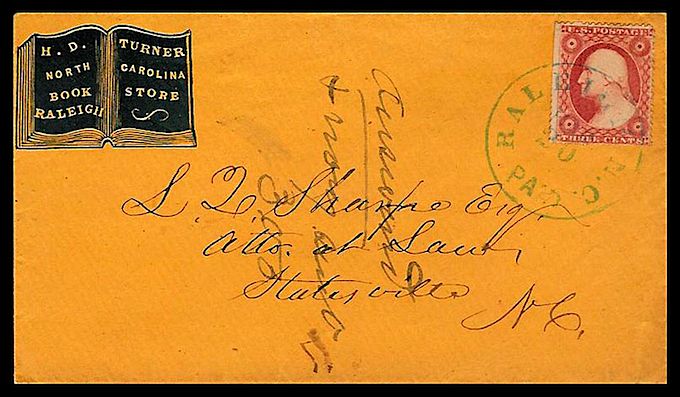 H. D. TURNER
NORTH CAROLINA
BOOK STORE
RALEIGH
U.S. POSTAGE
THREE CENTS
RALEIGH N.C.
PAID
L Q Sharpe Esq.
Atto. at Law,
Statesville
N.C.
Answered